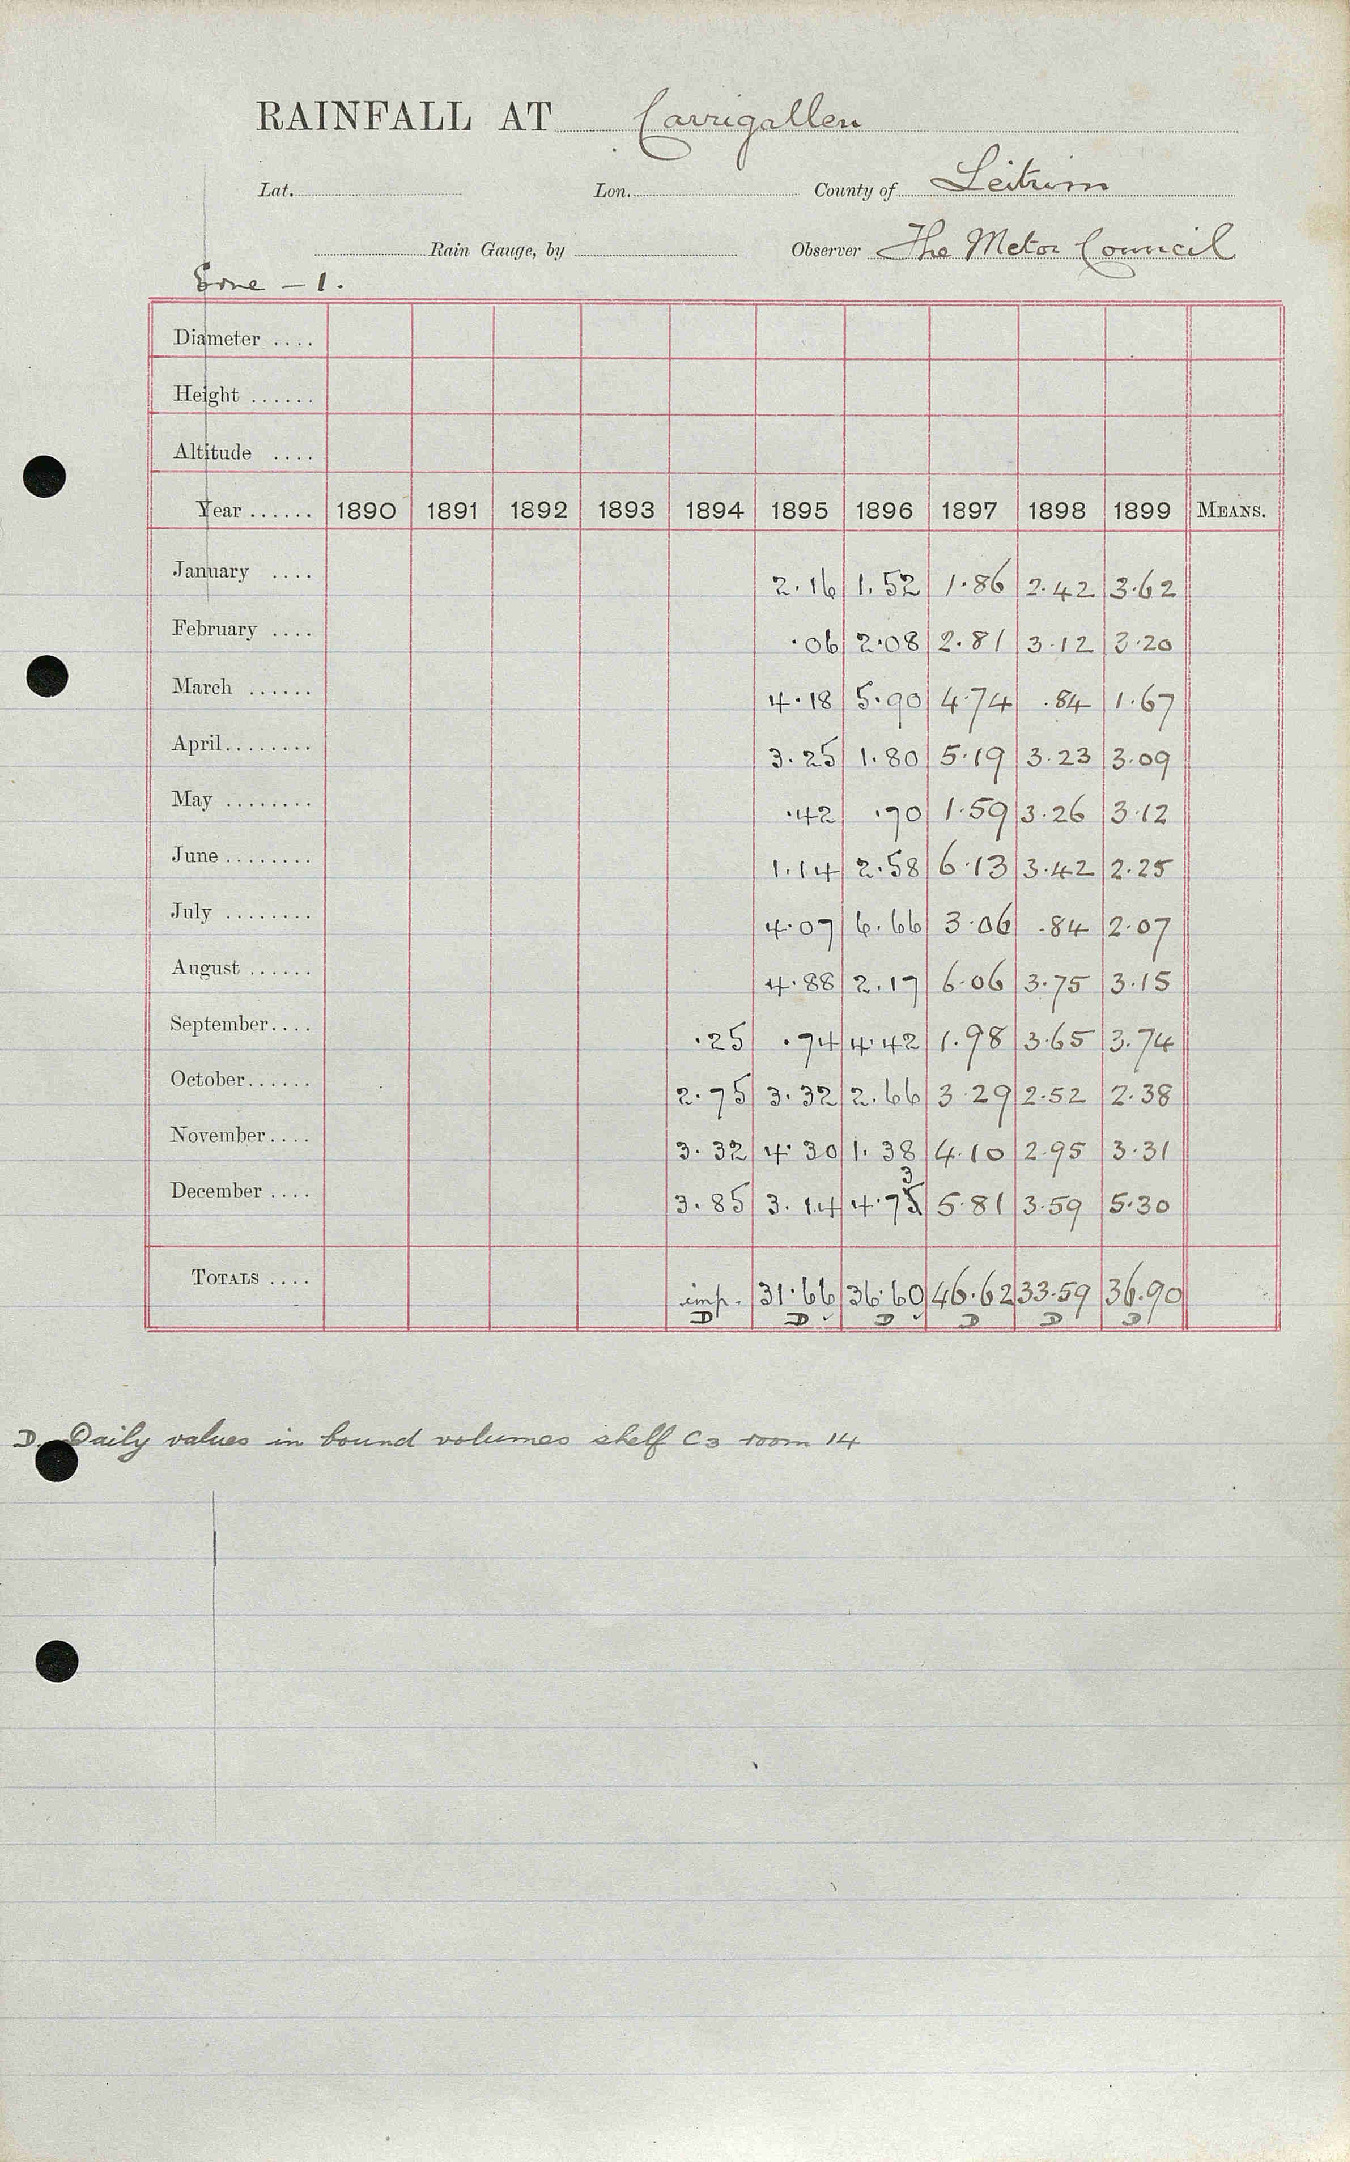 RAINFALL AT Carrigallen
Lat. Lon. County of Leitrim
Rain Gauge, by Observer The Meteor Council
Erne - 1.
Diameter ....
Height ......
Altitude ....
Year ...... 1890 1891 1892 1893 1894 1895 1896 1897 1898 1899 MEANS.
January .... 2.16 1.52 1.86 2.42 3.62
February .... .06 2.08 2.81 3.12 3.20
March ...... 4.18 5.90 4.74 .84 1.67
April........ 3.25 1.80 5.19 3.23 3.09
May ........ .42 .70 1.59 3.26 3.12
June ........ 1.14 2.58 6.13 3.42 2.25
July ........ 4.07 6.66 3.06 .84 2.07
August ...... 4.88 2.17 6.06 3.75 3.15
September.... .25 .74 4.42 1.98 3.65 3.74
October...... 2.75 3.32 2.66 3.29 2.52 2.38
November.... 3.32 4.30 1.38 4.10 2.95 3.31
3
December .... 3.85 3.14 4.75 5.81 3.59 5.30
TOTALS .... imp. 31.66 36.60 46.62 33.59 36.90
D D ✓ D ✓ D D D
D. Daily values in bound volumes shelf C3 room 14